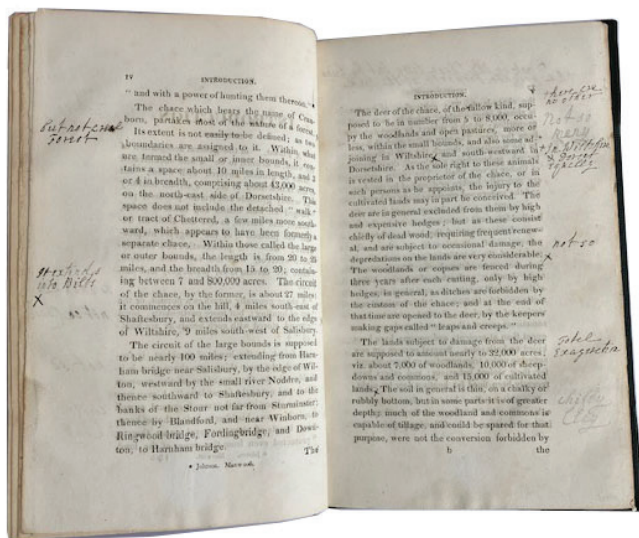 IV
INTRODUCTION.
" and with a power of hunting them thereon." *
The chace which bears the name of Cran-
born, partakes most of the nature of a forest.
Its extent is not easily to be defined; as two
boundaries are assigned to it. Within, what
are termed the small or inner bounds, it con-
tains a space about 10 miles in length, and 3
or 4 in breadth, comprising about 42,000 acres,
on the north-east side of Dorsetshire. This
space does not include the detached " walk"
or tract of Chettered, a few miles more south-
ward, which appears to have been formerly a
separate chace. Within those called the large
or outer bounds, the length is from 20 to 25
miles, and the breadth from 15 to 20; contain-
ing between 7 and 800,000 acres. The circuit
of the chace, by the former, is about 27 miles:
it commences on the hill, 4 miles south-east of
Shaftesbury, and extends eastward to the edge
of Wiltshire, 9 miles south-west of Salisbury.
The circuit of the large bounds is supposed
to be nearly 100 miles; extending from Harn-
ham bridge near Salisbury, by the edge of Wil-
ton, westward by the small river Nodder, and
thence southward to Shaftesbury, and to the
banks of the Stour not far from Sturminster;
thence by Blandford, and near Winborn, to
Ringwood bridge, Fordingbridge, and Down-
ton, to Harnham bridge.
The
* Johnson. Manwood.
But not
Forest
It extends
into Wilts
X
INTRODUCTION.
The deer of the chace, of the fallow kind, sup-
posed to be in number from 5 to 8,000, occu-
py the woodlands and open pastures, more or
less, within the small bounds, and also some ad-
joining in Wiltshire, and south-westward in
Dorsetshire. As the sole right to these animals
is vested in the proprietor of the chace, or in
such persons as he appoints, the injury to the
cultivated lands may in part be conceived. The
deer are in general excluded from them by high
and expensive hedges; but as these consist
chiefly of dead wood, requiring frequent renew-
al, and are subject to occasional damage, the
depredations on the lands are very considerable.
The woodlands or copses are fenced during
three years after each cutting, only by high
hedges, in general, as ditches are forbidden by
the custom of the chace; and at the end of
that time are opened to the deer, by the keepers
making gaps called " leaps and creeps."
The lands subject to damage from the deer
are supposed to amount nearly to 32,000 acres;
viz. about 7,000 of woodlands, 10,000 of sheep-
downs and commons, and 15,000 of cultivated
lands. The soil in general is thin, on a chalky or
rubbly bottom, but in some parts it is of greater
depth; much of the woodland and commons is
capable of tillage, and could be spared for that
purpose, were not the conversion forbidden by
b
the
there are
no other
Not so
many
+ In Wiltshire
& Dorset
X
not so
Total
Exageration
Clay